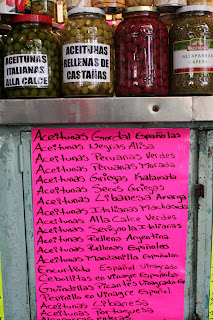 ACEITUNAS
ITALIANAS
ALLA CALCE
ACEITUNAS
RELLENAS DE
CASTAÑAS
ALCAPARRAS
CAPERS
Aceitunas Gordal Españolas
Aceitunas Negras Alisa
Aceitunas Peruanas Verdes
Aceitunas Peruanas Morada
Aceitunas Griegas Kalamata
Aceitunas Secas Griegas
Aceitunas Libanesa Amarga
Aceitunas Italianas Machacada
Aceitunas Alla Calce Verdes
Aceitunas Serignola Italianas
Aceitunas Rellena Argentina
Aceitunas Rellena Españoles
Aceitunas Manzanilla Española
Encurtido Español Vinagre
Cebollitas en vinagre Español
Guindillas Picantes Vinagre
Pepinillo en Vinagre Español
Aceitunas Libanesa
Aceitunas Portuguesa